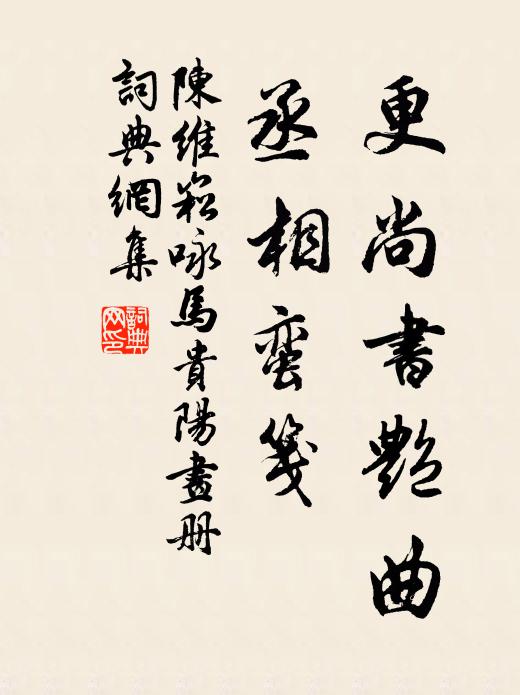 更尚書艷曲
丞相蛮箋
陳維崧咏馬貴陽畫册
詞典網集
詞典网印